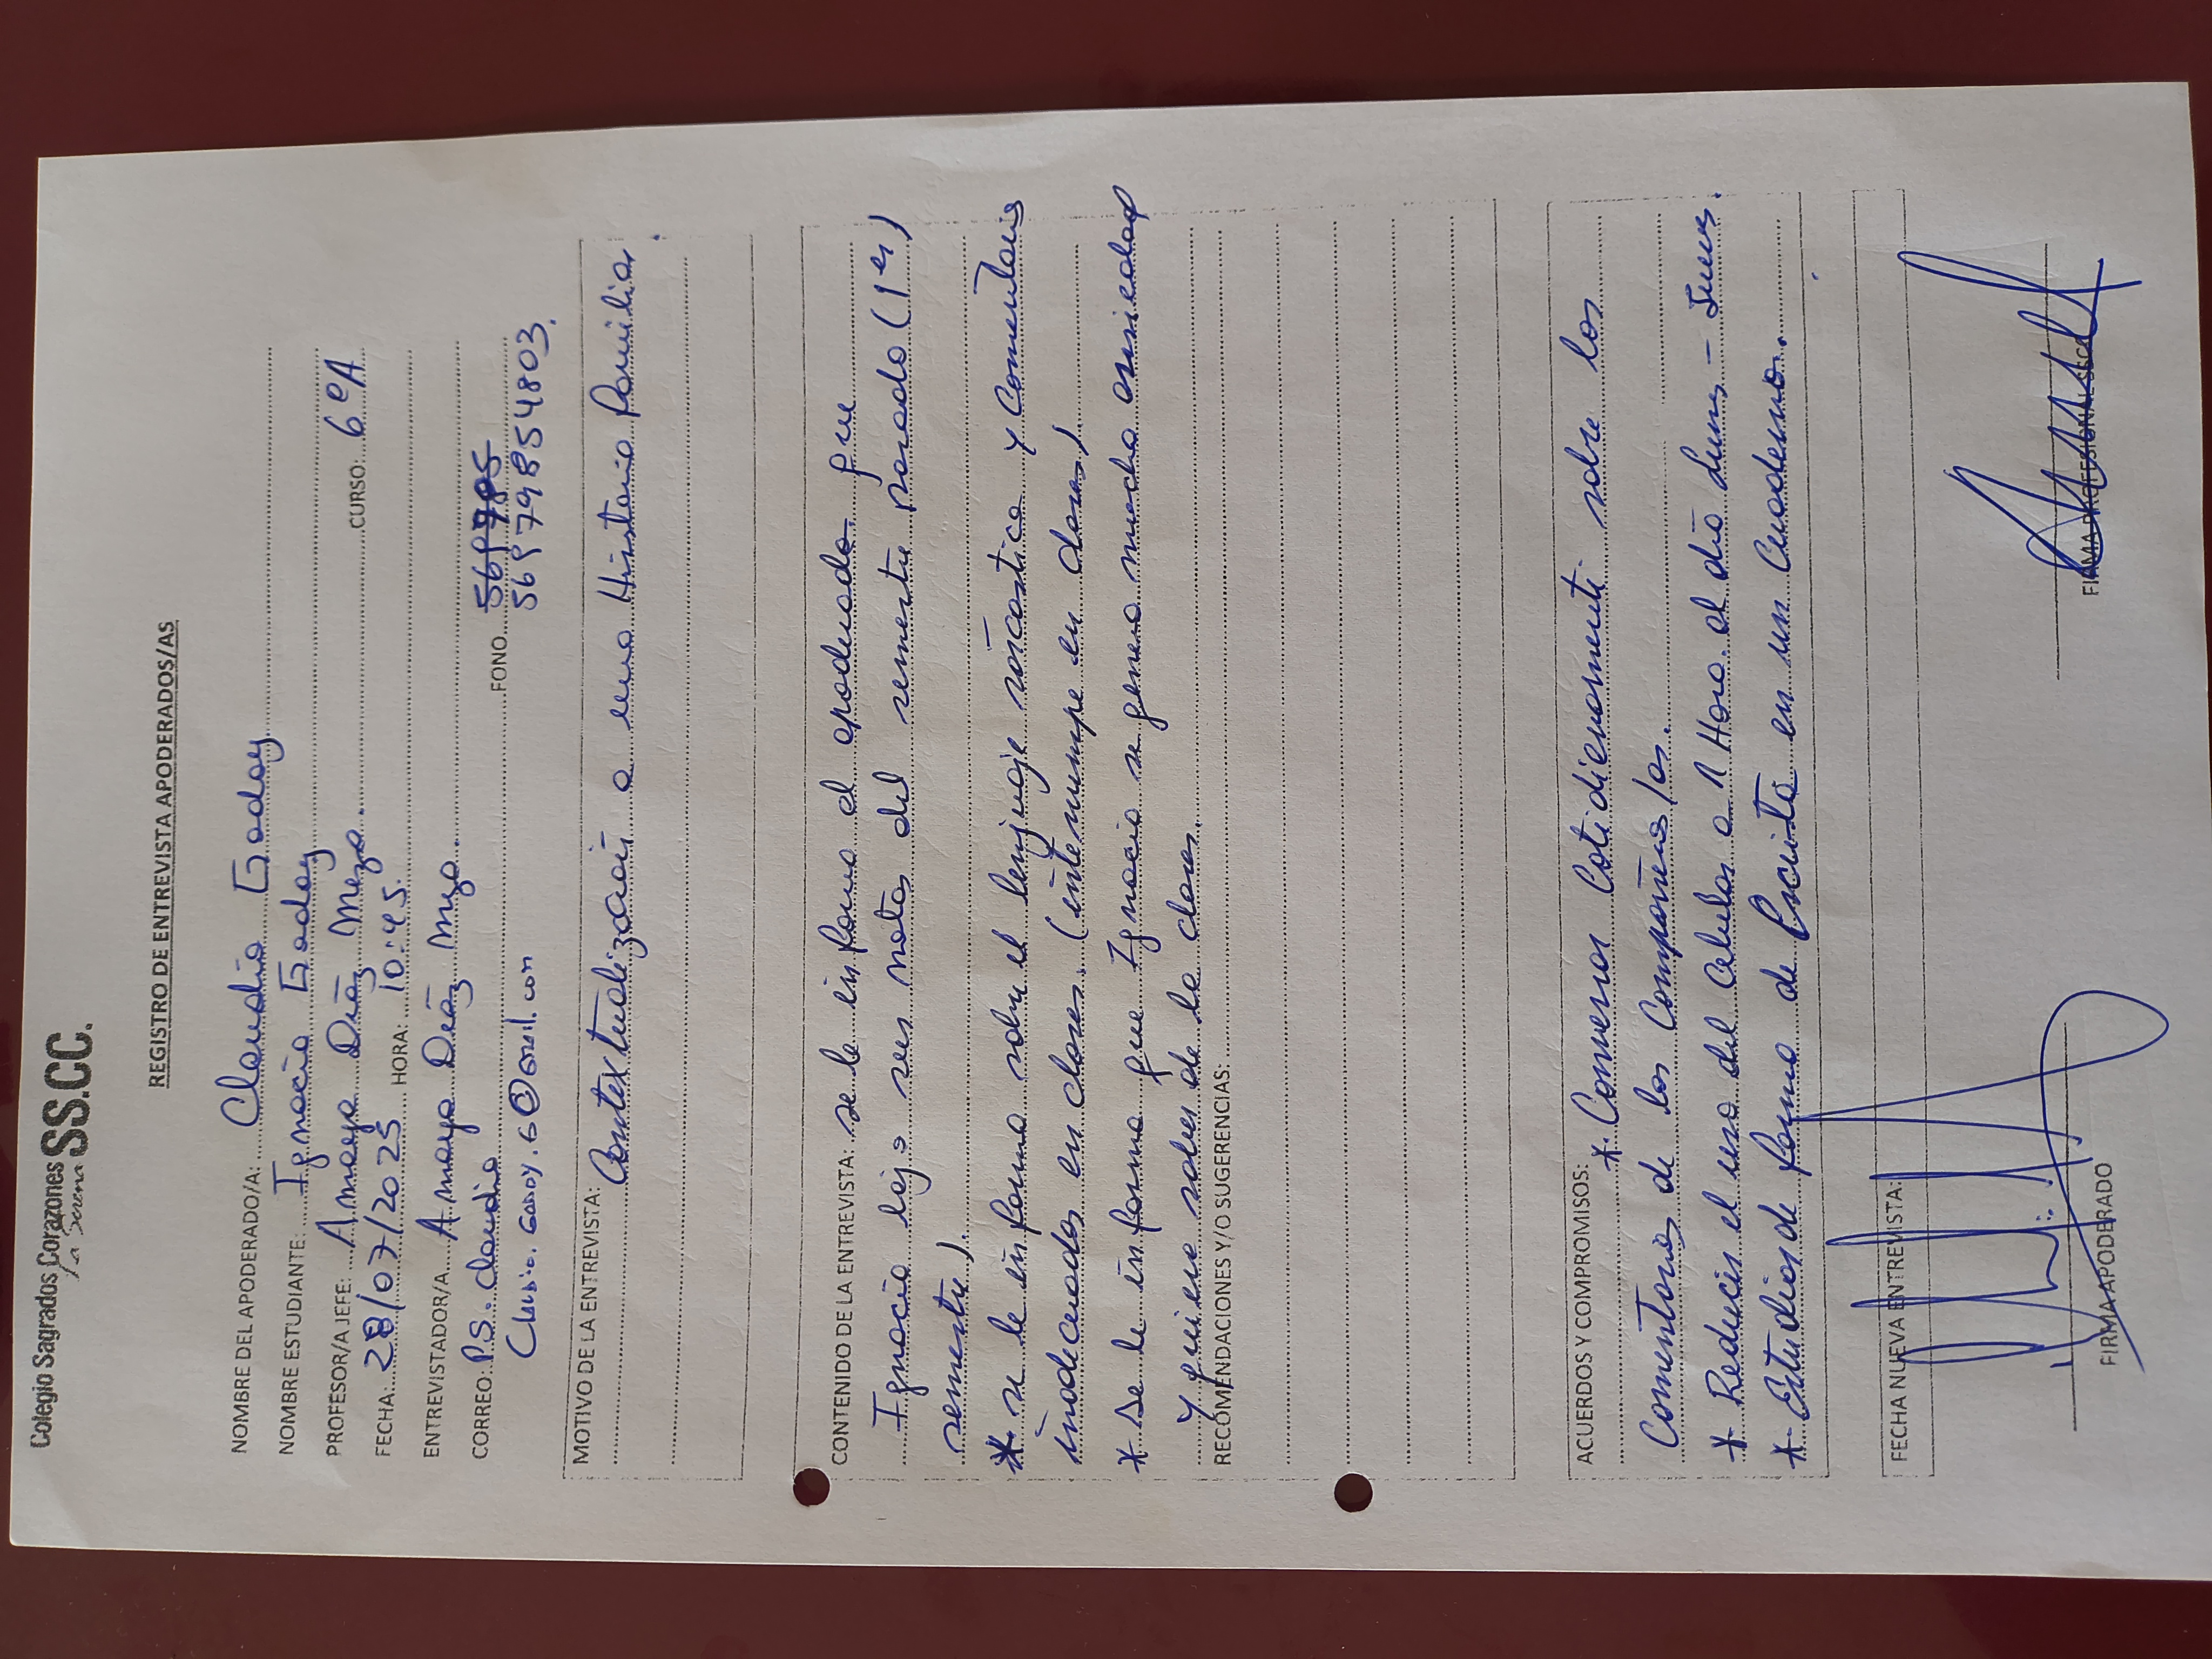 Colegio Sagrados Corazones
La Serena
SS.CC.
REGISTRO DE ENTREVISTA APODERADOS/AS
NOMBRE DEL APODERADO/A: Claudio Godoy
NOMBRE ESTUDIANTE: Ignacio Godoy
PROFESOR/A JEFE: Amaya Diáz Meza. CURSO: 6ºA
FECHA: 28/07/2025 HORA: 10:45.
ENTREVISTADOR/A Amaya Diáz Meza.
CORREO: P.S. claudio FONO
Claudio.Godoy.G@Gmail.com 56979854803.
MOTIVO DE LA ENTREVISTA:
Contextualización a una Historia familiar
CONTENIDO DE LA ENTREVISTA: se le informa al apoderado que
Ignacio bajo sus notas del semestre pasado (1er
semestre).
* se le informa sobre el lenjuaje sárcastico y Comentarios
inadecuados en clases. (interrumpe en clases)
* Se le informa que Ignacio se genera mucha ansiedad
y quiere salir de la clases.
RECOMENDACIONES Y/O SUGERENCIAS:
ACUERDOS Y COMPROMISOS:
* Conversar Cotidienamente sobre los
Comentarios de los Compañeros/as.
* Reducir el uso del Celular a 1 Hora al día lunes - Jueves.
* Estudios de forma de Escrita en un Cuaderno.
FECHA NUEVA ENTREVISTA:
FIRMA APODERADO
FIRMA PROFESIONAL SSCC